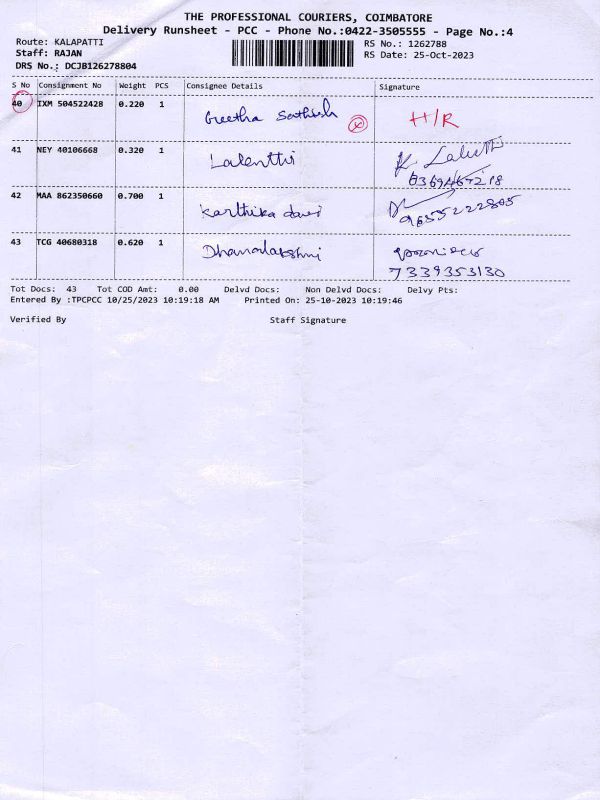 THE PROFESSIONAL COURIERS, COIMBATORE
Delivery Runsheet - PCC - Phone No.:0422-3505555 - Page No.:4
Route: KALAPATTI RS No.: 1262788
Staff: RAJAN RS Date: 25-Oct-2023
DRS No.: DCJB126278804
S No Consignment No Weight PCS Consignee Details Signature
40 IXM 504522428 0.220 1 Geetha Sathish H/R
41 NEY 40106668 0.320 1 Lalitha K. Lalitha
42 MAA 862350660 0.700 1 Karthika devi 9655222805
43 TCG 40680318 0.620 1 Dhanalakshmi
7339353130
Tot Docs: 43 Tot COD Amt: 0.00 Delvd Docs: Non Delvd Docs: Delvy Pts:
Entered By :TPCPCC 10/25/2023 10:19:18 AM Printed On: 25-10-2023 10:19:46
Verified By Staff Signature